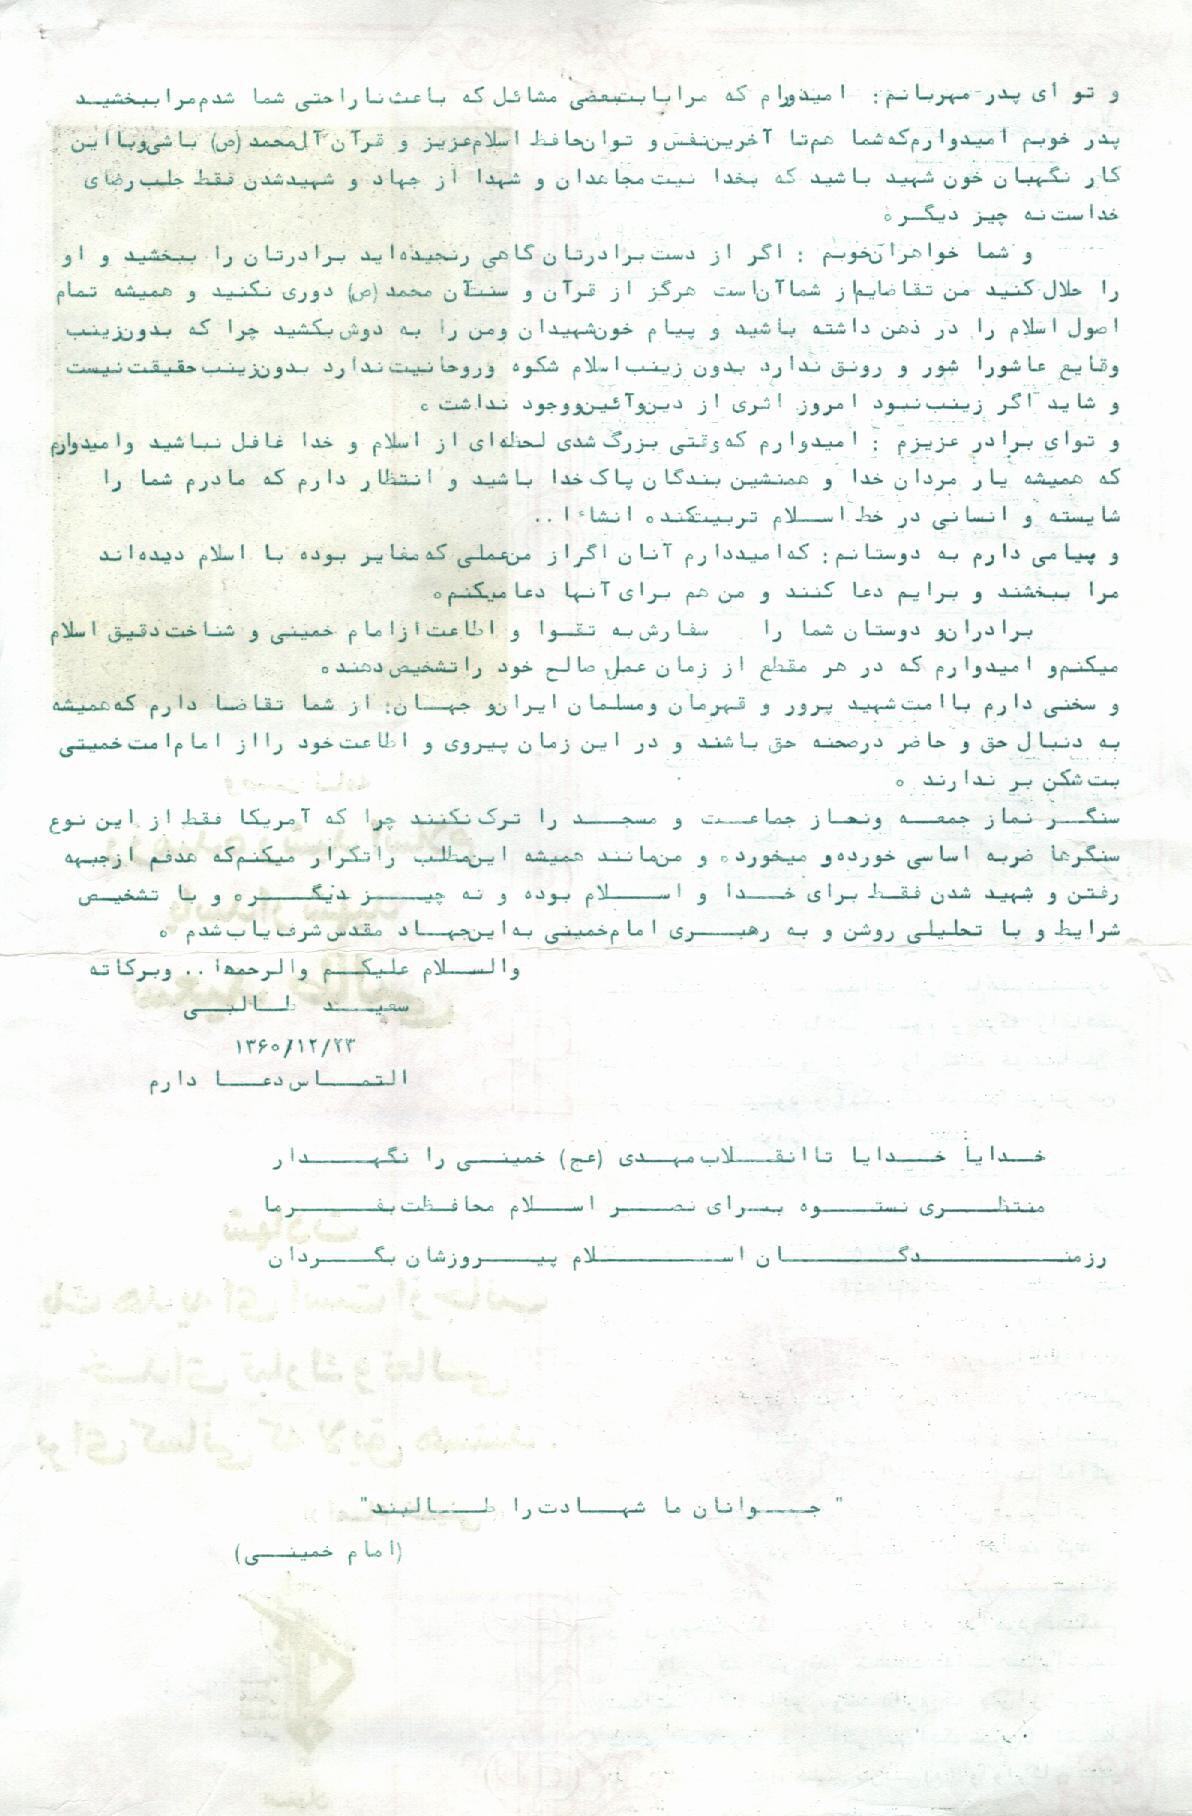 و تو ای پدر مهربانم: امیدوارم که مرا بابت بعضی مشائل که باعث ناراحتی شما شدم مرا ببخشید
پدر خوبم امیدوارم که شما هم تا آخرین نفس و توان حافظ اسلام عزیز و قرآن آل محمد (ص) باشی و با این
کار نگهبان خون شهید باشید که بخدا نیت مجاهدان و شهدا از جهاد و شهید شدن فقط جلب رضای
خداست نه چیز دیگره
و شما خواهران خوبم : اگر از دست برادرتان گاهی رنجیده اید برادرتان را ببخشید و او
را حلال کنید من تقاضایم از شما آن است هرگز از قرآن و سنت آن محمد (ص) دوری نکنید و همیشه تمام
اصول اسلام را در ذهن داشته باشید و پیام خون شهیدان و من را به دوش بکشید چرا که بدون زینب
وقایع عاشورا شور و رونق ندارد بدون زینب اسلام شکوه و روحانیت ندارد بدون زینب حقیقت نیست
و شاید اگر زینب نبود امروز اثری از دین و آئین و وجود نداشت ه
و تو ای برادر عزیزم : امیدوارم که وقتی بزرگ شدی لحظه ای از اسلام و خدا غافل نباشید و امیدوارم
که همیشه یار مردان خدا و همنشین بندگان پاک خدا باشید و انتظار دارم که مادرم شما را
شایسته و انسانی در خط اسلام تربیت کنده انشاء ا..
و پیامی دارم به دوستانم: که امیددارم آنان اگر از من عملی که مغایر بوده با اسلام دیده اند
مرا ببخشند و برایم دعا کنند و من هم برای آنها دعا میکنم ه
برادران و دوستان شما را سفارش به تقوا و اطاعت از امام خمینی و شناخت دقیق اسلام
میکنم و امیدوارم که در هر مقطع از زمان عمل صالح خود را تشخیص دهند ه
و سخنی دارم با امت شهید پرور و قهرمان و مسلمان ایران و جهان: از شما تقاضا دارم که همیشه
به دنبال حق و حاضر در صحنه حق باشند و در این زمان پیروی و اطاعت خود را از امام امت خمینی
بت شکن بر ندارند ه
سنگر نماز جمعه و نماز جماعت و مسجد را ترک نکنند چرا که آمریکا فقط از این نوع
سنگرها ضربه اساسی خورده و میخورده و من مانند همیشه این مطلب را تکرار میکنم که هدفم از جبهه
رفتن و شهید شدن فقط برای خدا و اسلام بوده و نه چیز دیگره و با تشخیص
شرایط و با تحلیلی روشن و به رهبری امام خمینی به این جهاد مقدس شرف یاب شدم ه
والسلام علیکم والرحمه ا.. وبرکاته
سعید طالبی
۱۳۶۰/۱۲/۲۳
التماس دعا دارم
خدایا خدایا تا انقلاب مهدی (عج) خمینی را نگهدار
منتظری نستوه برای نصر اسلام محافظت بفرما
رزمندگان اسلام پیروزشان بگردان
" جوانان ما شهادت را طالبند"
(امام خمینی)